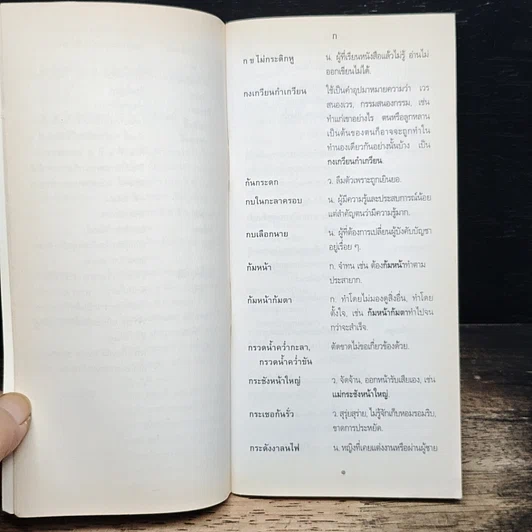 ก
ก ข ไม่กระดิกหู น. ผู้ที่เรียนหนังสือแล้วไม่รู้ อ่านไม่
ออกเขียนไม่ได้.
กงเกวียนกำเกวียน ใช้เป็นคำอุปมาหมายความว่า เวร
สนองเวร, กรรมสนองกรรม, เช่น
ทำแก่เขาอย่างไร ตนหรือลูกหลาน
เป็นต้นของตนก็อาจจะถูกทำใน
ทำนองเดียวกันอย่างนั้นบ้าง เป็น
กงเกวียนกำเกวียน.
ก้นกระดก ว. ลืมตัวเพราะถูกเยินยอ.
กบในกะลาครอบ น. ผู้มีความรู้และประสบการณ์น้อย
แต่สำคัญตนว่ามีความรู้มาก.
กบเลือกนาย น. ผู้ที่ต้องการเปลี่ยนผู้บังคับบัญชา
อยู่เรื่อย ๆ.
ก้มหน้า ก. จำทน เช่น ต้องก้มหน้าทำตาม
ประสายาก.
ก้มหน้าก้มตา ก. ทำโดยไม่มองดูสิ่งอื่น, ทำโดย
ตั้งใจ, เช่น ก้มหน้าก้มตาทำไปจน
กว่าจะสำเร็จ.
กรวดน้ำคว่ำกะลา, ตัดขาดไม่ขอเกี่ยวข้องด้วย.
กรวดน้ำคว่ำขัน
กระชังหน้าใหญ่ ว. จัดจ้าน, ออกหน้ารับเสียเอง, เช่น
แม่กระชังหน้าใหญ่.
กระเชอก้นรั่ว ว. สุรุ่ยสุร่าย, ไม่รู้จักเก็บหอมรอมริบ,
ขาดการประหยัด.
กระดังงาลนไฟ น. หญิงที่เคยแต่งงานหรือผ่านผู้ชาย
๑